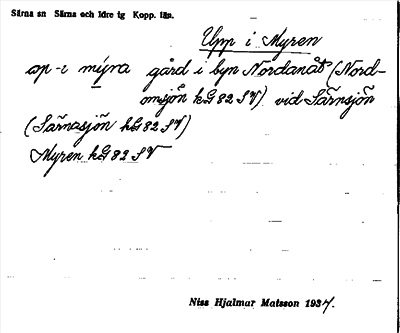 Särna sn Särna och Idre tg Kopp. läs.
Upp i Myren
op-i mýra gård i byn Nordanåt (Nord-
omsjön kG 82 SV) vid Särnsjön
(Särnasjön kG 82 SV)
Myren kG 82 SV
Niss Hjalmar Matsson 1937.